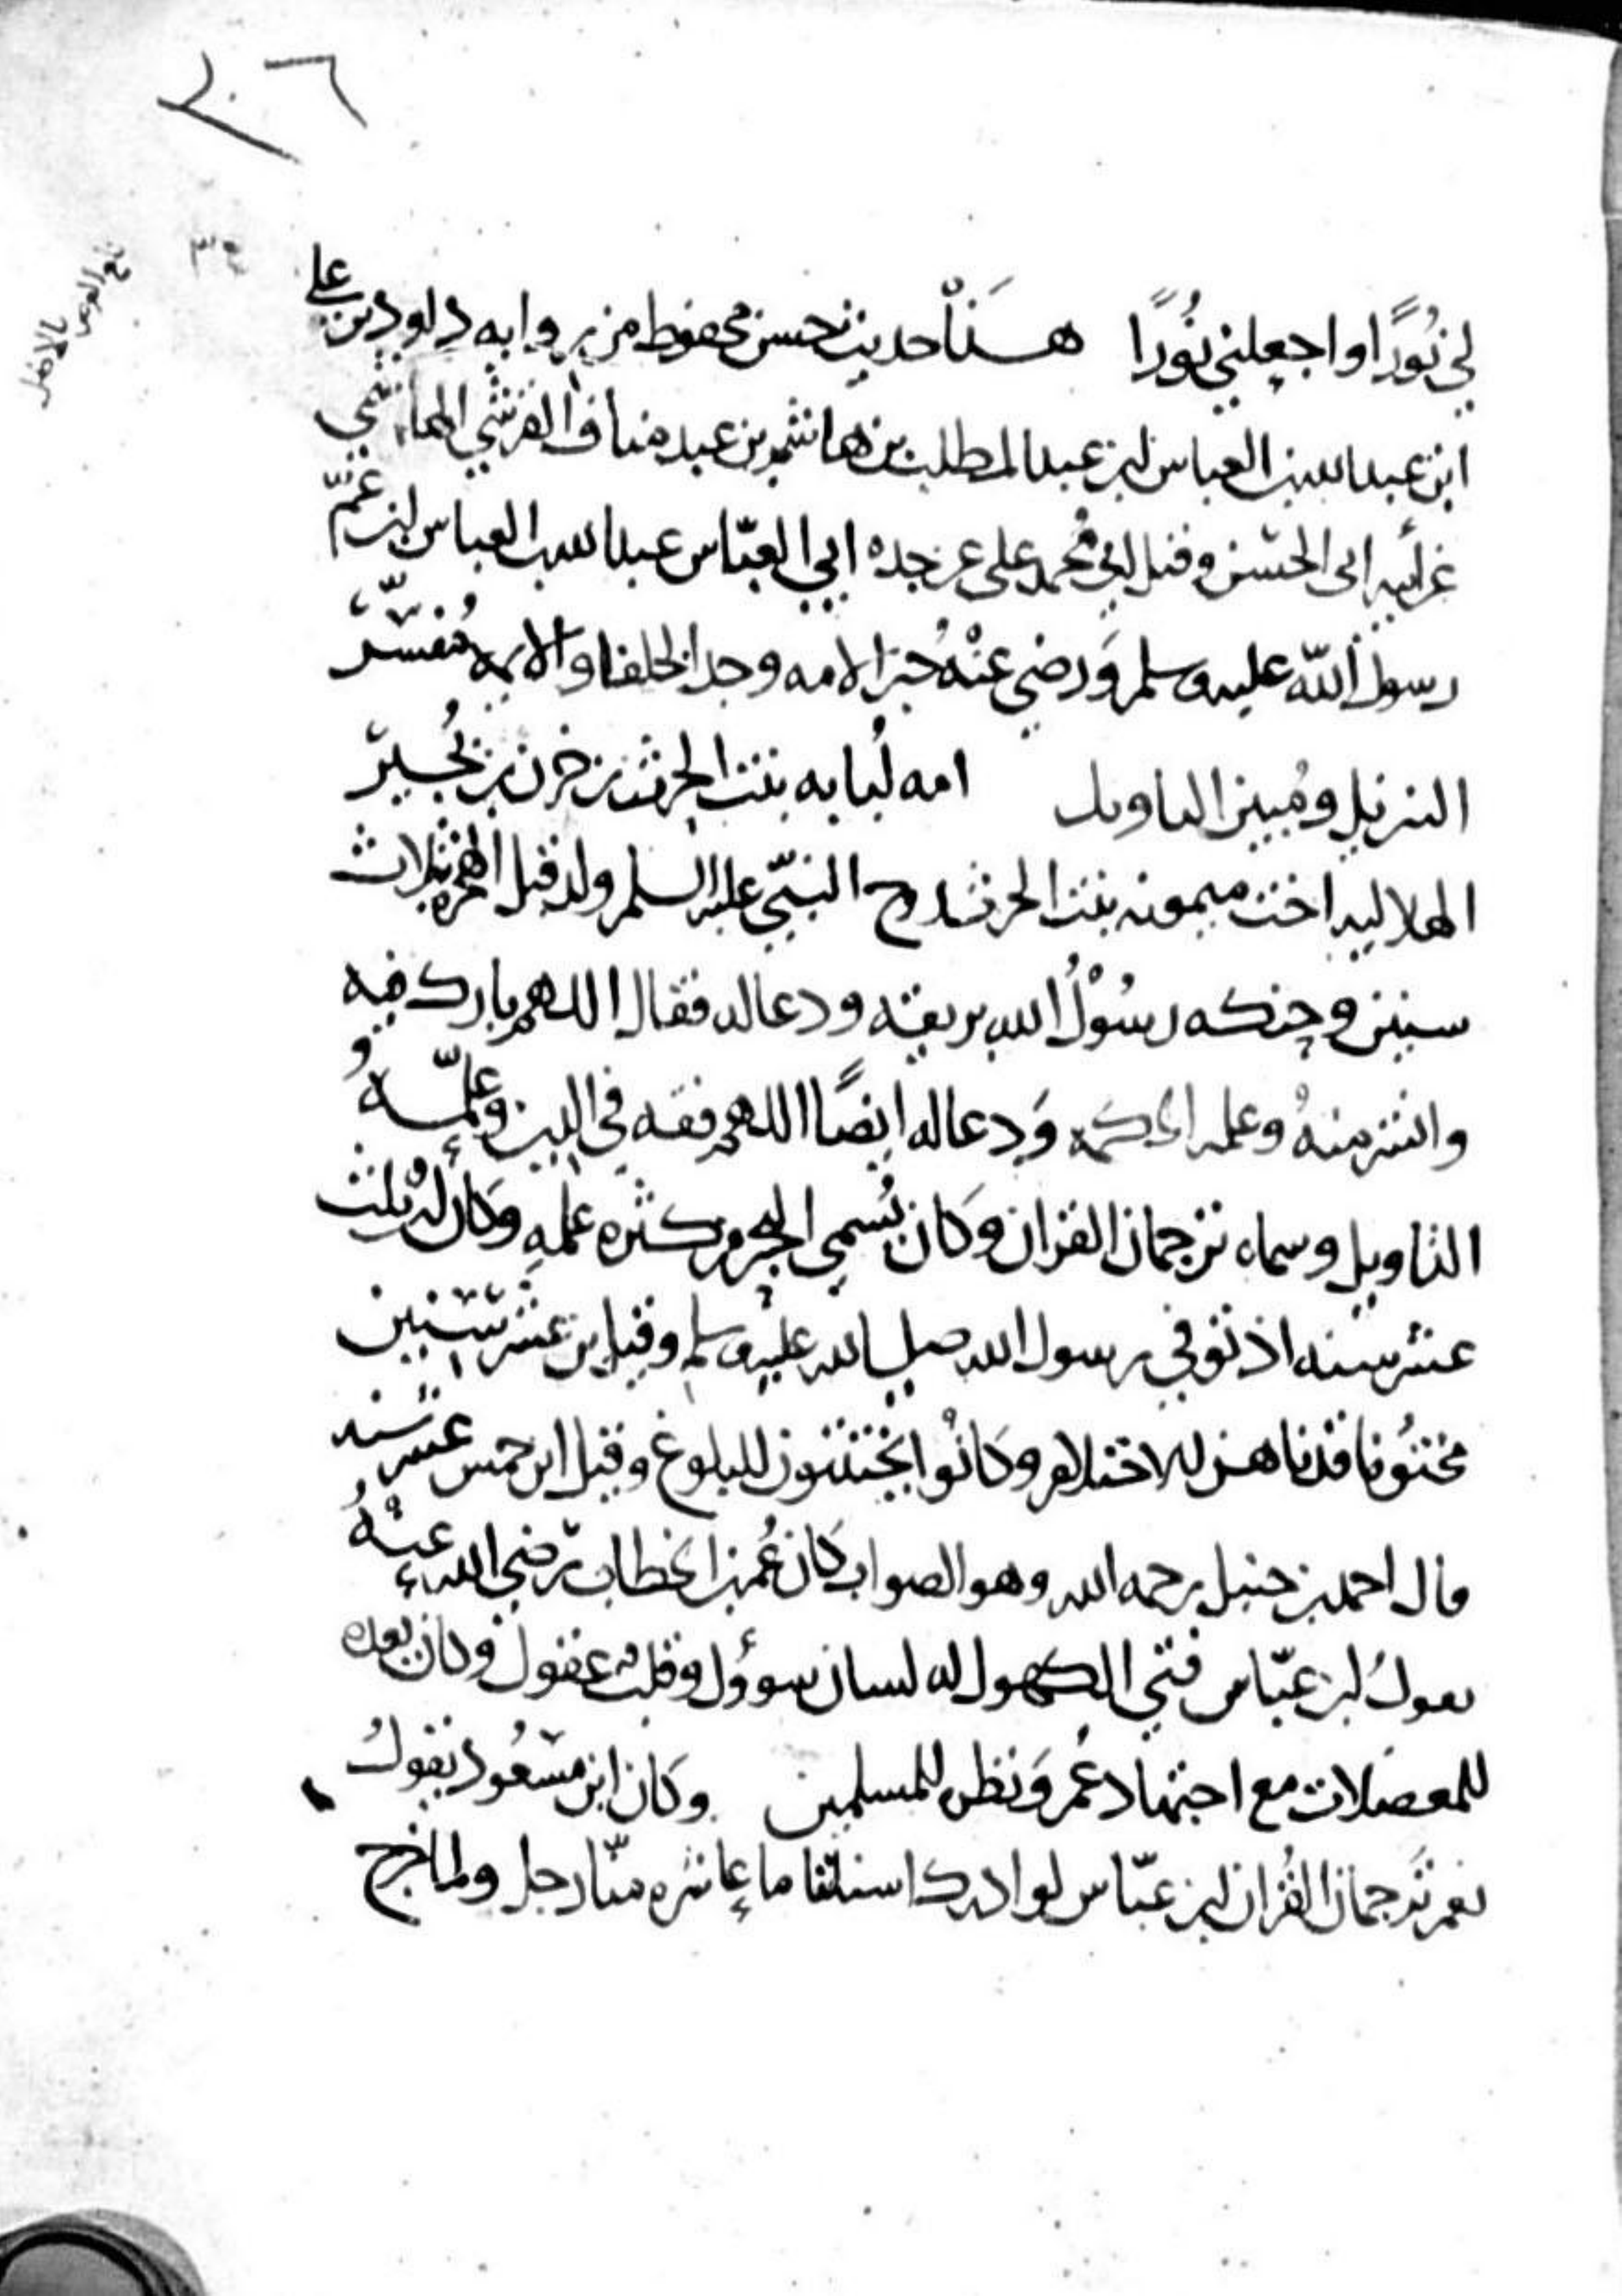 ٢٠٦
لي نُورًا واجعلني نُورًا هَذا حديث حسن محفوظ من رواية داود بن علي
ابن عبد الله بن العباس بن عبد المطلب بن هاشم بن عبد مناف القرشي الهاشمي
عن أبيه ابي الحسن وقيل ابي مُحمد علي عن جده ابي العبّاس عبد الله بن العباس ابن عَمّ
رسول الله عليه وسلم وَرضي عنْهُ حبر الامه وجد الخلفا والايمه مُفسّر
التنزيل ومُبين التاويل امه لُبابه بنت الحرث بن حزن بن بُجَير
الهلاليه اخت ميمونه بنت الحرث زوج النبيّ عليه السلم ولد قبل الهجره بثلاث
سنين وحنكه رسُوْلُ الله بريقه ودعا له فقال اللهم بارك فيه
وانشر منهُ وعلمه الحكمه وَدعا له ايضًا اللهم فقه في الدين وعلّمهُ
التاويل وسماه ترجمان القران وَكان يُسمى البحر من كثره علمه وَكان له ثلث
عشر سنه اذ توفي رسول الله صلى الله عليه وسلم وقيل بن عشر سنين
مختُونا قد ناهز للاختلام وكانُوا يختتنون للبلوغ وقيل ابن خمس عشر سنه
قال احمد بن حنبل رحمه الله وهو الصواب كان عُمر بن الخطاب رضي الله عنهُ
يقولُ ابن عبّاس فتى الكهول له لسان سوؤل وقلب عقول وكان يعده
للمعضلات مع اجتهاد عُمر وَنظره للمسلمين وكان ابن مسعُود يقولُ
نعم تَرجمان القُران ابن عبّاس لو ادرك اسناننا ما عاشره منّا رجل ولما خرج